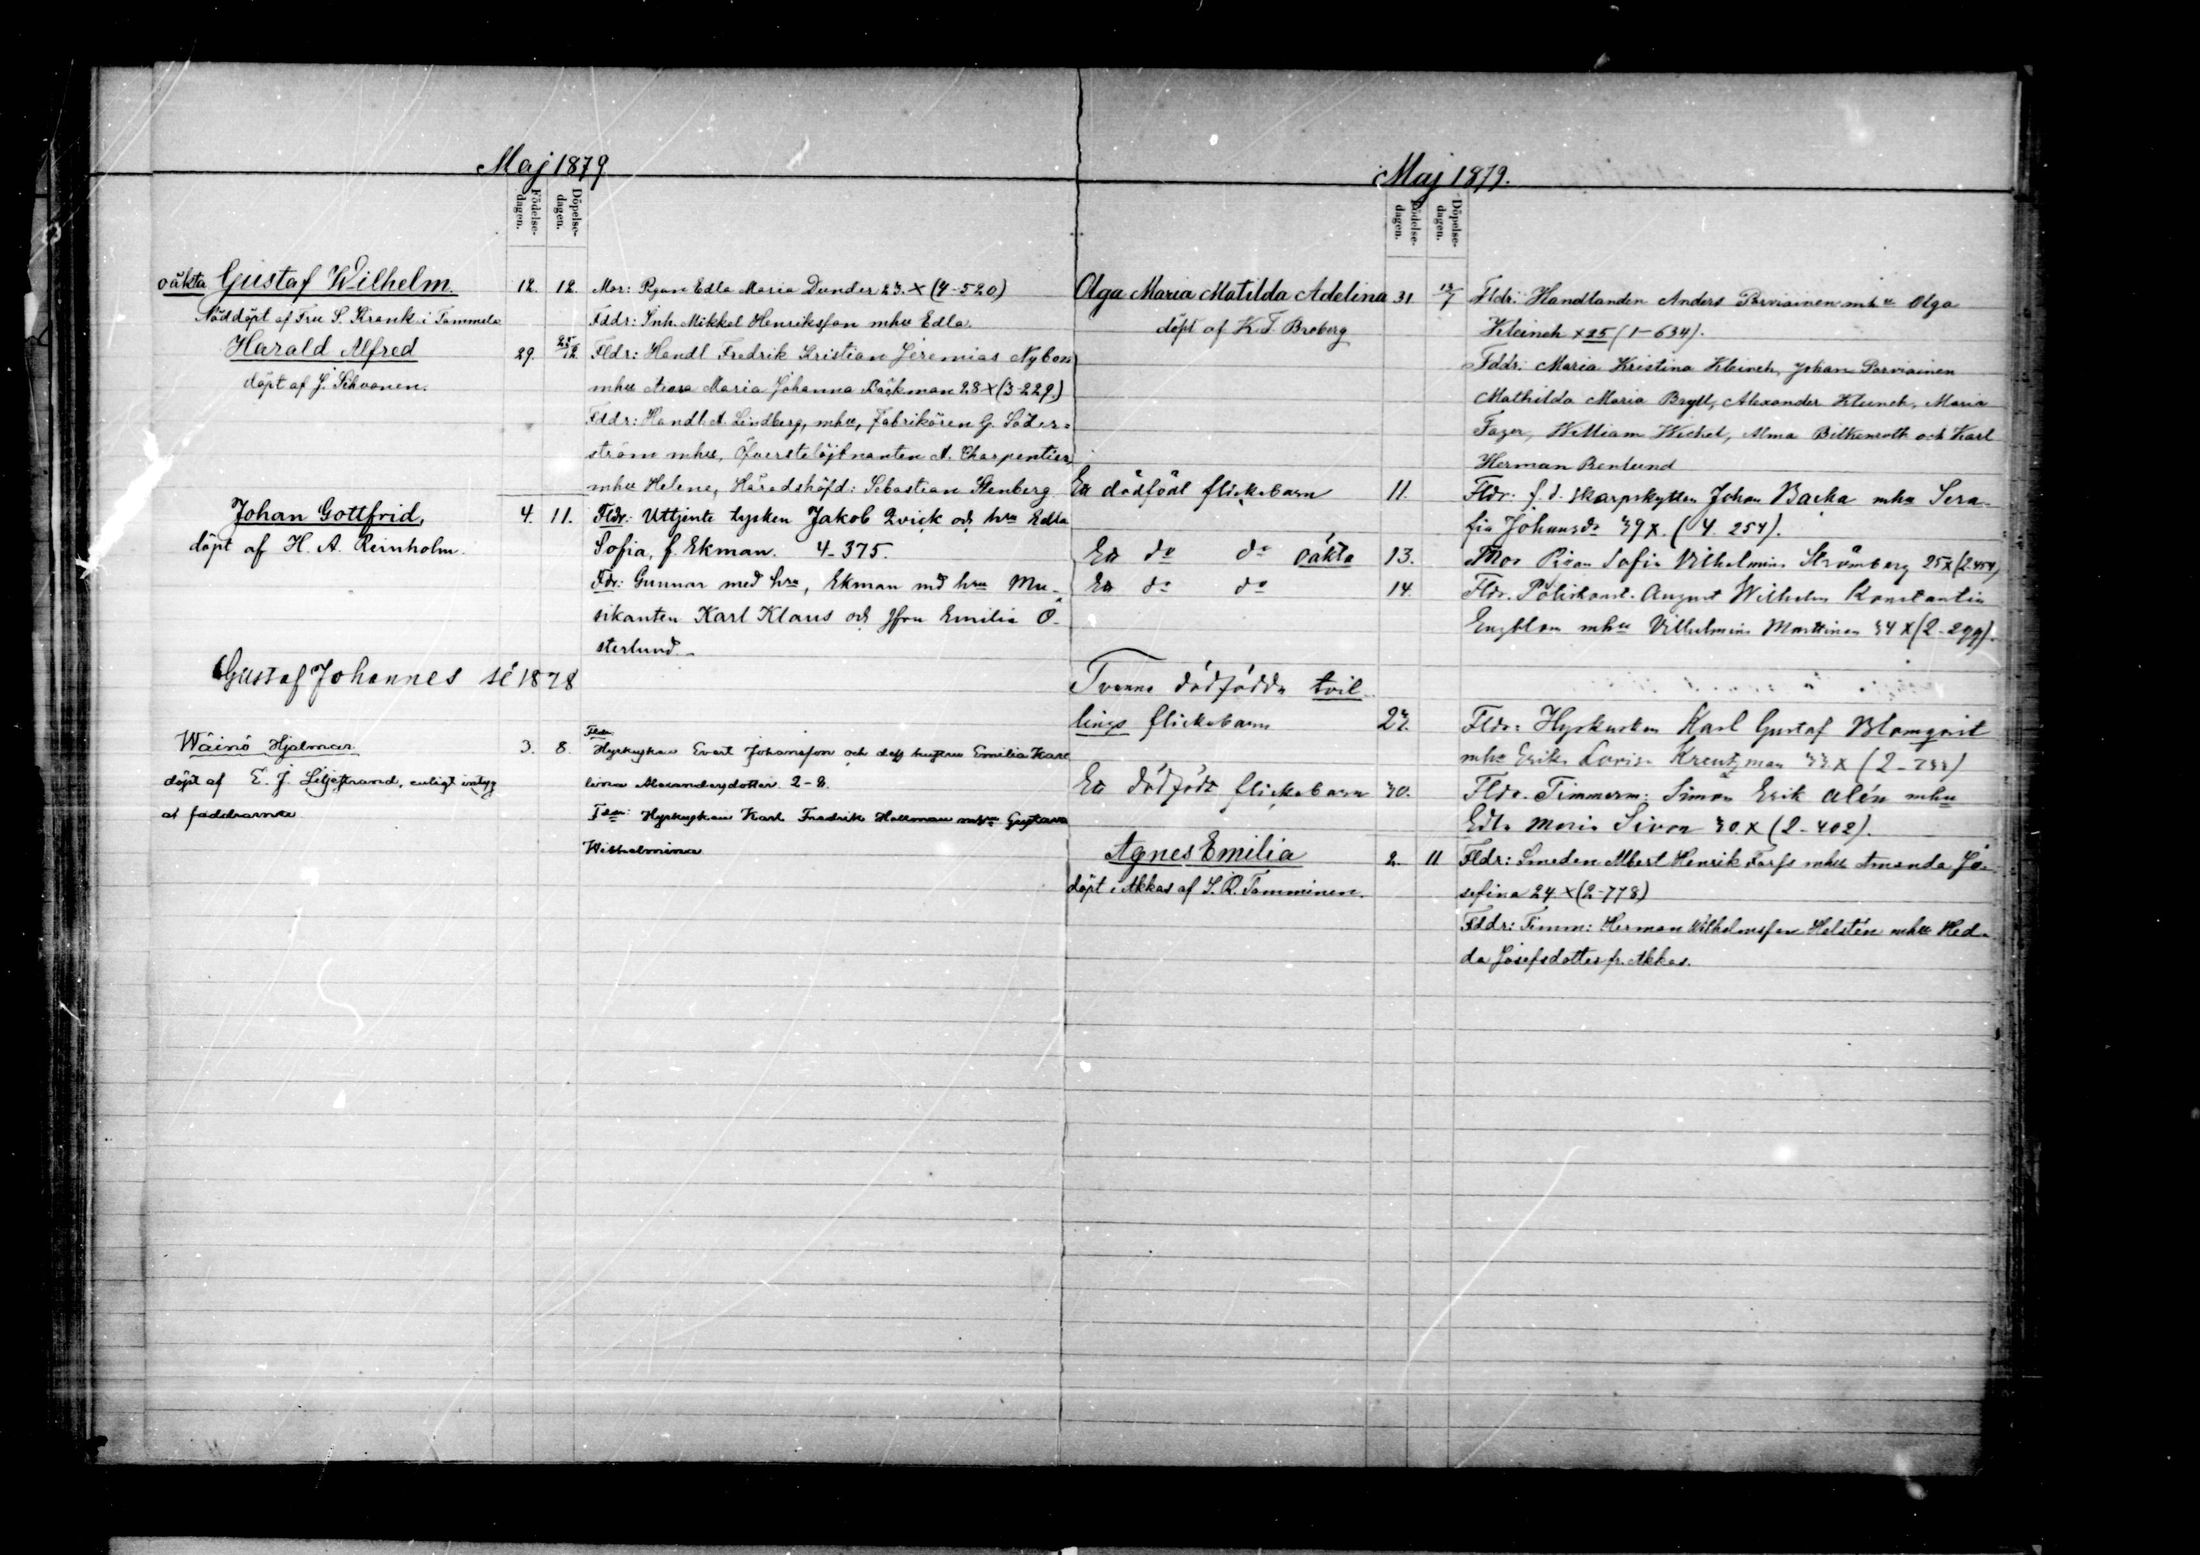 Maj 1879
Födelse-
dagen.
Döpelse-
dagen.
oäkta Gustaf Wilhelm. 12. 12. Mor: Pigan Edla Maria Dunder 23. X (4-520)
Nöddöpt af Fru S. Krank i Tammela Fddr: Inh. Mikkel Henriksson mhu Edla.
Harald Alfred 29. 25/12. Fldr: Handl Fredrik Kristian Jeremias Nybom
döpt af J. Sihvonen. mhu Maria Johanna Backman 28 X (3-229.)
Fddr: Handl. A. Lindberg, mhu, Fabrikören G. Söder-
ström mhu, Öfverstelöjtnanten A. Charpentier
mhu Helene, Häradshöfd: Sebastian Stenberg
Johan Gottfrid, 4. 11. Fldr: Uttjente tysken Jakob Qvick och hru Edla
döpt af H. A. Reinholm. Sofia, f. Ekman. 4-375.
Fdr: Gunnar med hru, Ekman md hru Mu-
sikanten Karl Klaus och Jfru Emilia Ö-
sterlund.
Gustaf Johannes sé 1878
Wäinö Hjalmar 3. 8. Fldr:
Hyrkusken Evert Johansson och dess hustru Emilia Karo
döpt af E. J. Liljestrand, enligt intyg lina Alexandersdotter 2-8.
af faddrarne Fdr: Hyrkusken Karl Fredrik Hallman mhu Gustava
Wilhelmina
Maj 1879.
Födelse-
dagen.
Döpelse-
dagen.
Olga Maria Matilda Adelina 31 13/7 Fldr: Handlanden Anders Parviainen mhu Olga
döpt af K. T. Broberg Kleineh X 25 (1-634).
Fddr: Maria Kristina Kleineh, Johan Parviainen
Mathilda Maria Brydl, Alexander Kleineh, Maria
Fazer, William Wichel, Alma Biltenroth och Karl
Herman Renlund
Ett dödfödt flickebarn 11. Fldr: f. d. skarpskytten Johan Backa mhu Sera-
fia Johansdr 39 X. (4. 254).
Ett do do oäkta 13. Mor Pigan Sofia Vilhelmina Strömberg 25 X (2.454)
Ett do do 14. Fldr. Poliskonst. August Wilhelm Konstantin
Engblom mhu Vilhelmina Marttinen 34 X (2-299).
Tvenne dödfödda tvil-
lings flickebarn 27. Fldr: Hyrkusken Karl Gustaf Blomqvist
mhu Erika Lovisa Kreutzman 33. X (2-733)
Ett dödfödt flickebarn 30. Fldr. Timmerm: Simon Erik Alén mhu
Edla Maria Sivon 30. X (2-402).
Agnes Emilia 2. 11 Fldr: Smeden Albert Henrik Forss mhu Amanda Jo-
döpt i Akkas af S. R. Tamminen. sefina 24. X (2-778)
Fddr: Timm: Herman Wilhelmsson Helstén mhu Hed-
da Josefsdotter fr. Akkas.